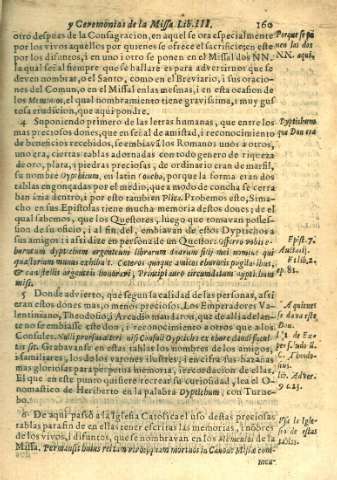 y Ceremonias de la Missa Lib. III. 160
otro despues de la Consagracion, en aquel se ora especialmente
por los vivos aquellos por quienes se ofrece el sacrificio; en este
por los difuntos, i en uno i otro se ponen en el Missal dos NN.
la qual señal siempre que se hallare es para advertirnos que se
deven nombrar, o el Santo, como en el Breviario, i sus oracio-
nes del Comun, o en el Missal en las mesmas, i en esta ocasion de
los Mementos, el qual nombramiento tiene gravissima, i muy gus-
tosa erudicion, que aqui pondre.
4 Suponiendo primero de las letras humanas, que entre los
mas preciosos dones, que en señal de amistad, i reconocimiento
de beneficios recebidos, se embiavã los Romanos unos a otros,
uno era, ciertas tablas adornadas con todo genero de riqueza
de oro, plata, i piedras preciosas, de ordinario eran de marfil,
su nombre Dyptichum, en latin
porque la forma eran dos
tablas engonçadas por el medio, que a modo de concha se cerra
ban
dentro, i por esto tambien
Probemos esto, Sima-
cho en sus Epistolas tiene mucha memoria destos dones, de el
qual sabemos, que los Questores, luego que tomavan posses-
sion de su oficio, i al fin del, embiavan de estos Dyptichos a
sus amigos: i assi dize en persona de un Questor: Offero vobis e-
burneum dyptichum argenteum librarum duarum filij mei nomine qui
quæstorium munus exhibuit. Cæteros quoque amicos eburneis pugilaribus,
& canistellis argenteis honoravi, Principi auro circumdatum dyptichum
misi.
5 Donde advierto, que segun la calidad de las personas, assi
eran estos dones mas, o menos preciosos. Los Emperadores Va-
lentiniano, Theodosio, i Arcadio mandaron, que de alli adelan-
te no se embiasse este don, i reconocimiento a otros que a los
Consules. Nulli prorsus alteri nisi Consuli Dyptichos ex ebore dandi facul-
tas sit. Gravavanse en estas tablas los nombres de los amigos,
i familiares, los dolos varones ilustres, i en cifra sus hazañas
mas gloriosas para perpetua memoria, i recordacion de ellas.
El que en este punto quisiere recrear su curiosidad, lea el O-
nomastico de Heriberto en la palabra Dyptichum, con Turne-
bo.
6 De aqui passò a la Iglesia Catolica el uso destas preciosas
tablas para fin de en ellas tener escritas las memorias, i nobres
de los vivos, i difuntos, que se nombravan en los Mementos de la
Missa. Permansit huius rei tam vivis, quam mortuis in Canone Missæ com-
moca-
Porque se põ
nen las dos
NN. aqui,
Dyptichum
que Don era
Epist. 7.
Auctoli.
Et lib. 2.
ep. 81.
A quienes
se dava este
Don.
L. 1. de Ex-
lib. Adver.
9 c. 23.
Usa la Igle-
sia de estas